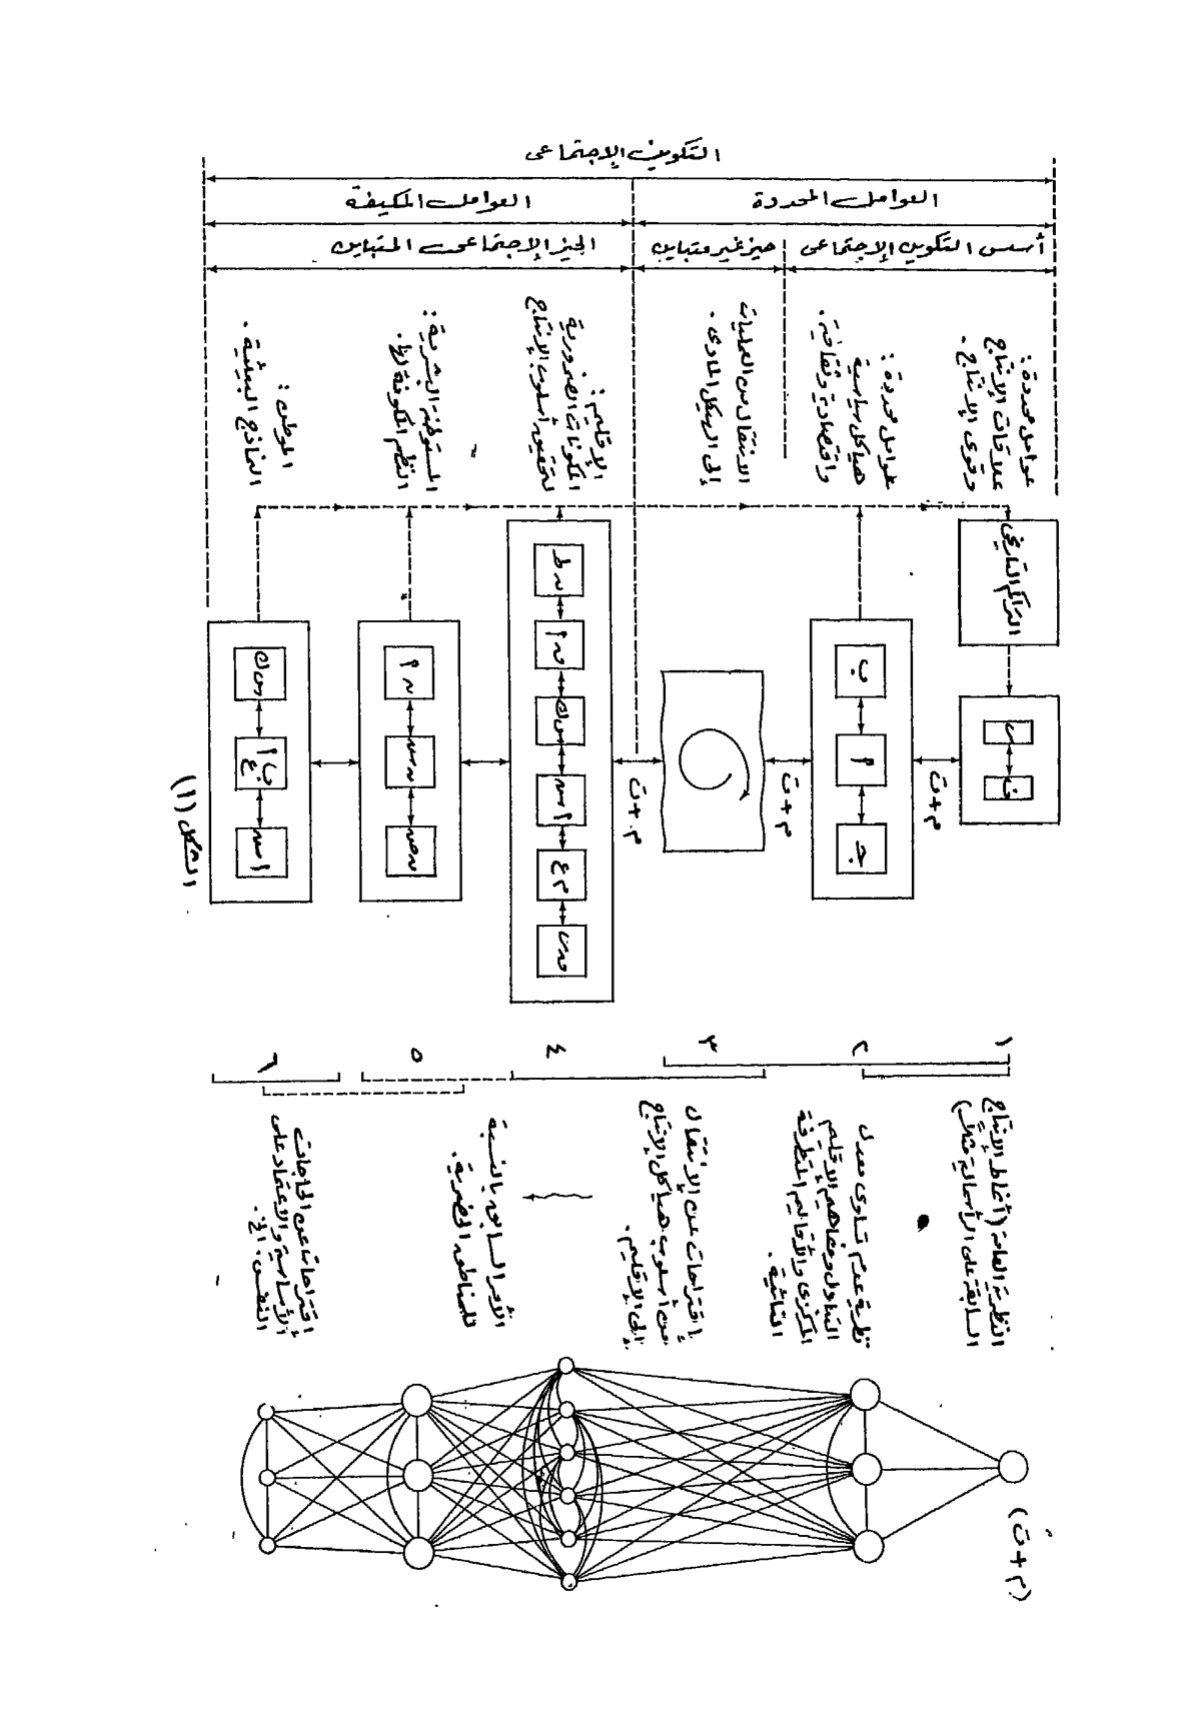 التكوين الإجتماعى
العوامل المحددة
العوامل المكيفة
أسس التكوين الإجتماعى
حيز غير متباين
الحيز الإجتماعى المتباين
عوامل محددة :
علاقات الإنتاج
وقوى الإنتاج .
عوامل محددة :
هياكل سياسية
واقتصادية وثقافية .
الانتقال من العمليات
إلى الهيكل المادى .
الإقليم :
المكونات الضرورية
لتحقيق أسلوب الإنتاج
المستوطنة البشرية :
النظم المكونة لها .
الموطن :
النماذج البيئية .
التراكم التاريخى
ب
م
جـ
م + ت
م + ت
م + ت
م ع
الشكل (١)
١
٢
٣
٤
٥
٦
النظرية العامة (أنماط الإنتاج
السابقة على الرأسمالية مثلاً)
نظرية عدم تساوى معدل
التبادل ومفاهيم الإقليم
المركزى والأقاليم المتطرفة
النائية .
إقتراحات عن الإنتقال
من أسلوب هياكل الإنتاج
إلى الإقليم .
الأمر السابق بالنسبة
للمناطق الحضرية .
إقتراحات عن الحاجات
الأساسية والاعتماد على
النفس .. الخ .
(م + ت)